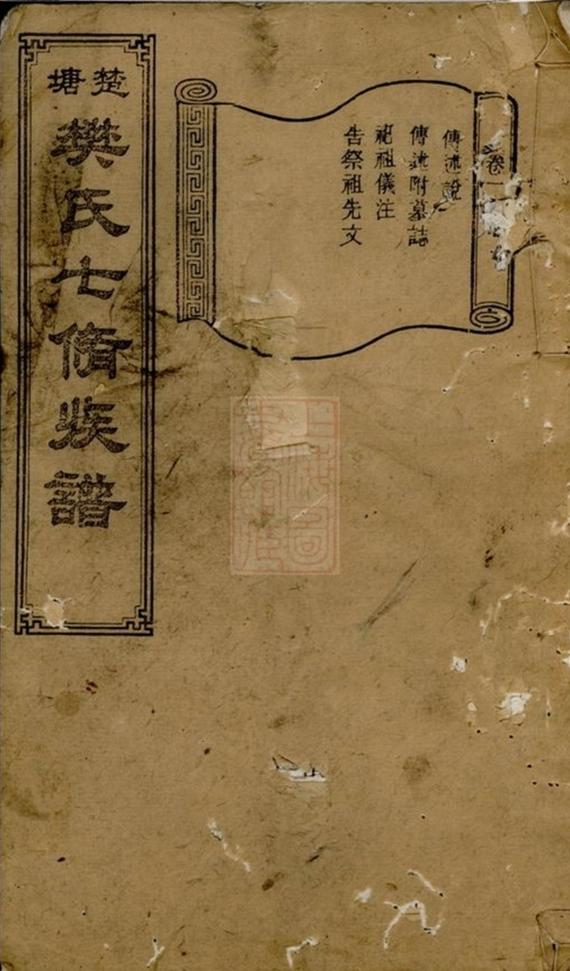 楚塘
樊氏七脩族譜
卷一
傳述說
傳述附墓誌
祀祖儀注
告祭祖先文